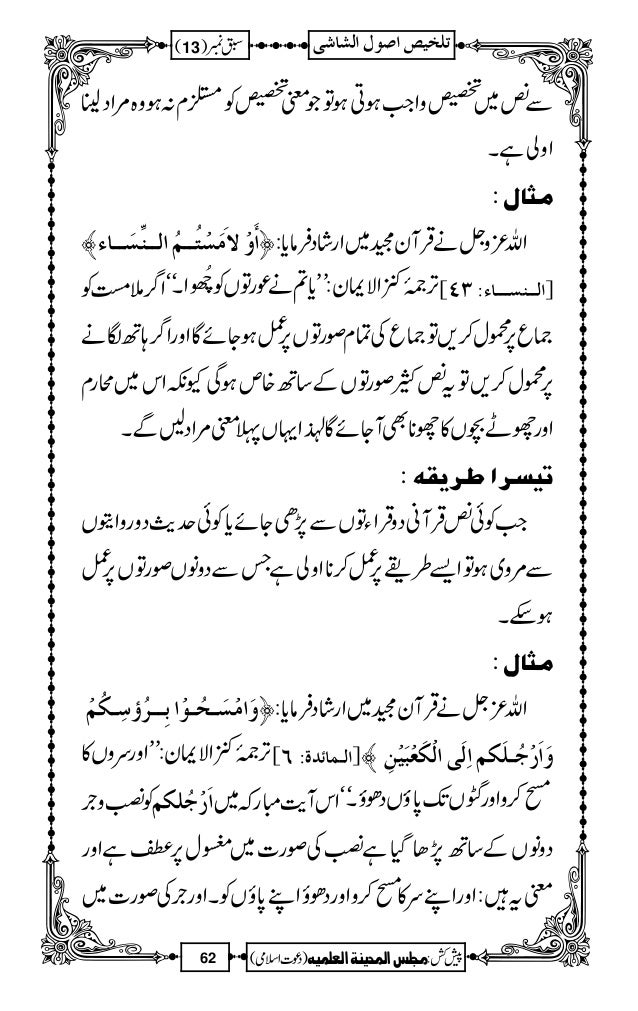 تلخیص اصول الشاشی سبق نمبر (13)
سے نص میں تخصیص واجب ہوتی ہو تو جو معنی تخصیص کو مستلزم نہ ہو وہ مراد لینا
اولی ہے۔
مثال :
اللہ عزوجل نے قرآن مجید میں ارشاد فرمایا: ﴿أَوْ لاَمَسْتُمُ النِّسَاء ﴾
[النساء: ٤٣] ترجمۂ کنز الایمان: ’’یا تم نے عورتوں کو چُھوا۔‘‘ اگر ملامست کو
جماع پر محمول کریں تو جماع کی تمام صورتوں پر عمل ہو جائے گا اور اگر ہاتھ لگانے
پر محمول کریں تو یہ نص کثیر صورتوں کے ساتھ خاص ہوگی کیونکہ اس میں محارم
اور چھوٹے بچوں کا چھونا بھی آجائے گا لہذا یہاں پہلا معنی مراد لیں گے۔
تیسرا طریقہ :
جب کوئی نص قرآنی دو قراءتوں سے پڑھی جائے یا کوئی حدیث دو روایتوں
سے مروی ہو تو ایسے طریقے پر عمل کرنا اولی ہے جس سے دونوں صورتوں پر عمل
ہوسکے۔
مثال :
اللہ عزجل نے قرآن مجید میں ارشاد فرمایا: ﴿وَامْسَحُوْا بِرُؤسِكُمْ
وَاَرْجُلَكم إِلَى الْكَعْبَيْنِ ﴾ [المائدة: ٦] ترجمۂ کنز الایمان: ’’اور سروں کا
مسح کرو اور گٹوں تک پاؤں دھوؤ۔‘‘ اس آیت مبارکہ میں اَرْجُلکم کو نصب و جر
دونوں کے ساتھ پڑھا گیا ہے نصب کی صورت میں مغسول پر عطف ہے اور
معنی یہ ہیں: اور اپنے سر کا مسح کرو اور دھوؤ اپنے پاؤں کو۔ اور جر کی صورت میں
پیش کش: مجلس المدینة العلمیه (دعوت اسلامی) 62